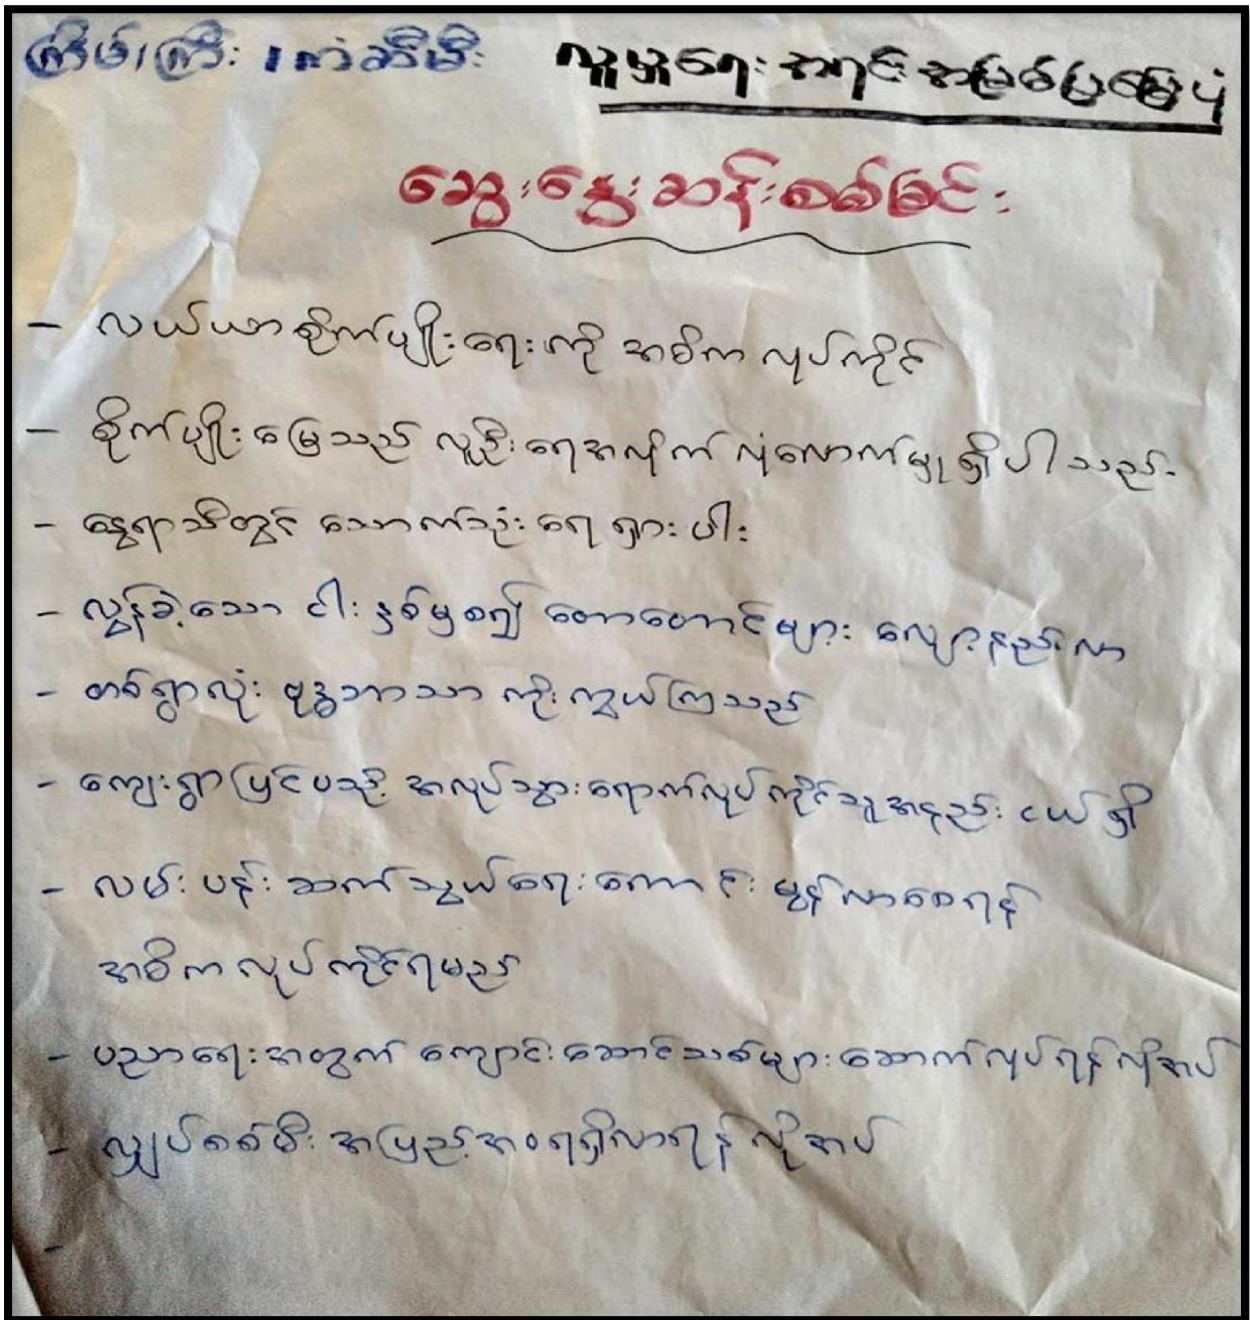 ကြိမ်ကြီး ၊ ကံဆီမီး လူမှုရေး အရင်းအမြစ်ပြမြေပုံ
ဆွေးနွေးဆန်းစစ်ခြင်း
- လယ်ယာစိုက်ပျိုးရေးကို အဓိက လုပ်ကိုင်
- စိုက်ပျိုးမြေသည် လူဦးရေအလိုက် လုံလောက်မှုရှိပါသည်.
- နွေရာသီတွင် သောက်သုံးရေ ရှားပါး
- လွန်ခဲ့သော ငါးနှစ်မှစ၍ တောတောင်များ လျော့နည်းလာ
- တစ်ရွာလုံး ဗုဒ္ဓဘာသာ ကိုးကွယ်ကြသည်
- ကျေးရွာပြင်ပသို့ အလုပ်သွားရောက်လုပ်ကိုင်သူအနည်းငယ်ရှိ
- လမ်းပန်းဆက်သွယ်ရေးကောင်းမွန်လာစေရန်
အဓိက လုပ်ကိုင်ရမည်
- ပညာရေးအတွက် ကျောင်းဆောင်သစ်များဆောက်လုပ်ရန်လိုအပ်
- လျှပ်စစ်မီး အပြည့်အဝရရှိလာရန် လိုအပ်
-